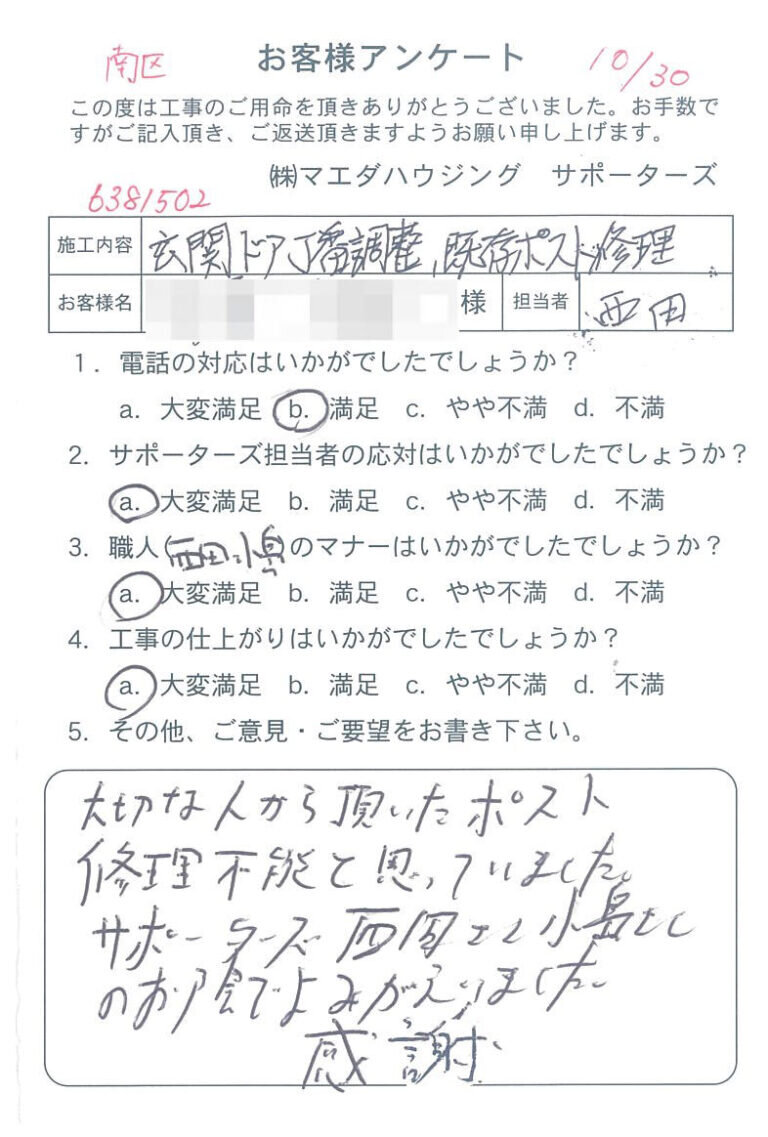 南区 お客様アンケート 10/30
この度は工事のご用命を頂きありがとうございました。お手数で
すがご記入頂き、ご返送頂きますようお願い申し上げます。
㈱マエダハウジング サポーターズ
6381502
施工内容 玄関ドア丁番調整、既存ポスト修理
お客様名 様 担当者 西田
1. 電話の対応はいかがでしたでしょうか?
a. 大変満足 b. 満足 c. やや不満 d. 不満
2. サポーターズ担当者の応対はいかがでしたでしょうか?
a. 大変満足 b. 満足 c. やや不満 d. 不満
3. 職人(西田、小島)のマナーはいかがでしたでしょうか?
a. 大変満足 b. 満足 c. やや不満 d. 不満
4. 工事の仕上がりはいかがでしたでしょうか?
a. 大変満足 b. 満足 c. やや不満 d. 不満
5. その他、ご意見・ご要望をお書き下さい。
大切な人から頂いたポスト
修理不能と思っていました。
サポーターズ西田さん小島さん
のお陰でよみがえりました。
感謝